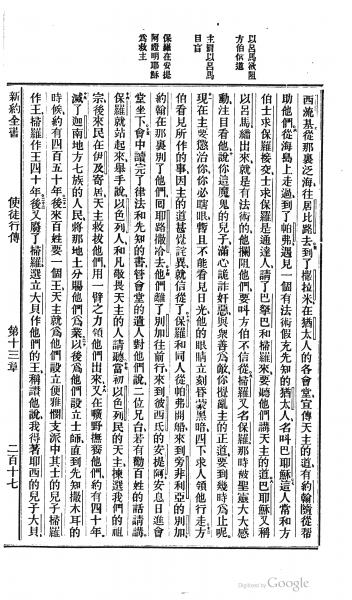 以呂馬欲阻
方伯信道
主罰以呂馬
目盲
保羅在安提
阿證明耶穌
為救主
西流基從那裏泛海往居比路去到了撒拉米在猶太人的各會堂宣傳天主的道有約翰隨從幫
助他們從海島上走過到了帕弗遇見一個有法術假充先知的猶太人名叫巴耶穌這人常和方
伯士求保羅接交士求保羅是通達人請了巴拏巴和掃羅來要聽他們講天主的道巴耶穌又稱
以呂馬繙出來就是有法術的他攔阻他們要叫方伯不信從掃羅又名保羅那時被聖靈大大感
動注目看他說你這魔鬼的兒子滿心詭詐奸惡與衆善為敵你攪亂主的正道要到幾時為止呢
現在主要懲治你你必瞎眼暫且不能看見日光他的眼睛立刻昏蒙黑暗四下求人領他行走方
伯看見所作的事因主的道甚從詫異就信從了保羅和同人從帕弗開船來到旁非利亞的別加
約翰在那裏別了他們囘耶路撒冷去他們離了別加往前行來到彼西氏的安提阿安息日進會
堂坐下會中讀完了律法和先知的書管會堂的遣人對他們說二位兄台若有勸百姓的話請講
保羅就站起來舉手說以色列人和凡敬畏天主的人請聽當初以色列民的天主揀選我們的祖
宗後來民在伊及寄居天主救拔他們用一臂之力領他們出來又在曠野撫養他們約有四十年
滅了迦南地方七族的人民將那地土分賜他們為業以後為他們設立士師直到先知撒木耳的
時候約有四百五十年後來百姓要一個王天主就為他們設立便雅憫支派中其士的兒子掃羅
作王掃羅作王四十年後又廢了掃羅選立大貝作他們的王稱讚他說我得著耶西的兒子大貝
新約全書 使徒行傳 第十三章 二百十七
Digitized by Google